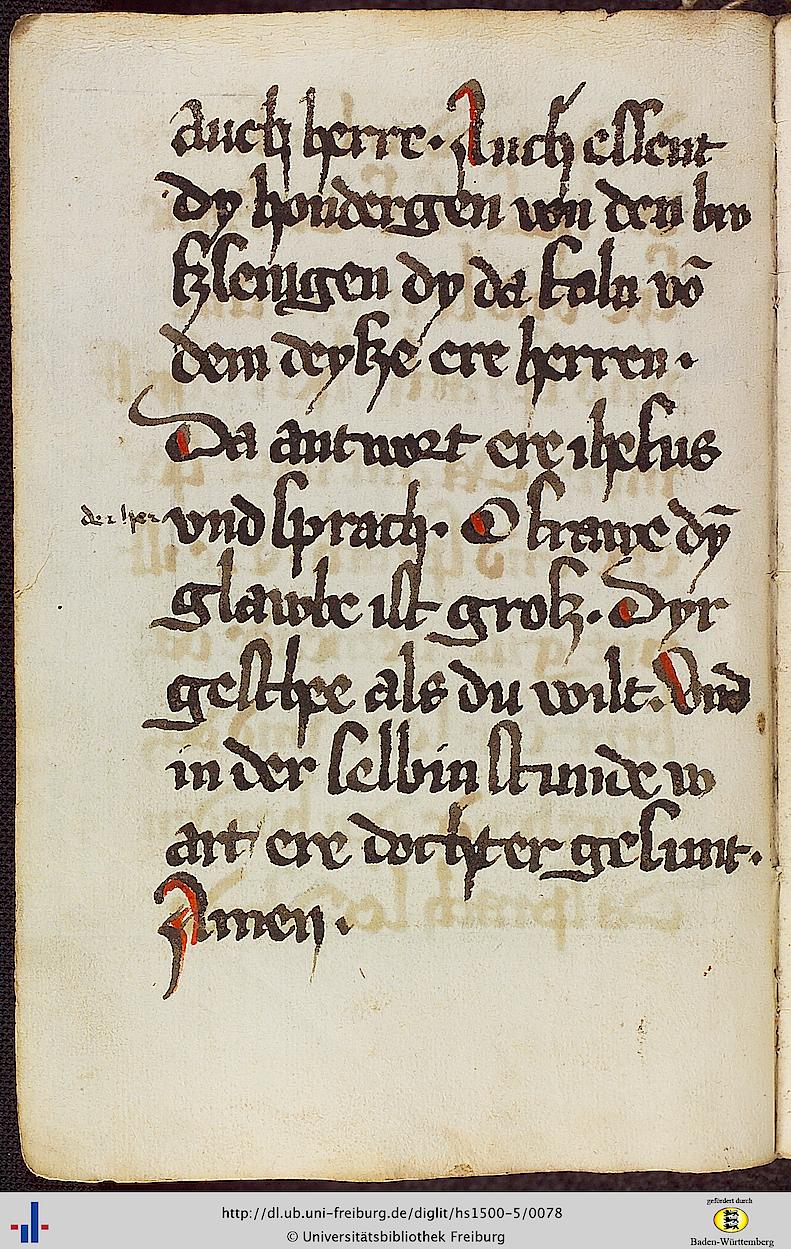 auch herre. Auch essent
dy hondergen von den bro
sslenigen dy da foln vō
dem deysze ere herren.
Da antwort ere ihesus
der her vnd sprach. O frawe dȳ
glawbe ist grosz. Dyr
geschee als du wilt. Vnd
in der selbin stunde w
art ere dochter gesunt.
Amen.
http://dl.ub.uni-freiburg.de/diglit/hs1500-5/0078
© Universitätsbibliothek Freiburg
gefördert durch
Baden-Württemberg